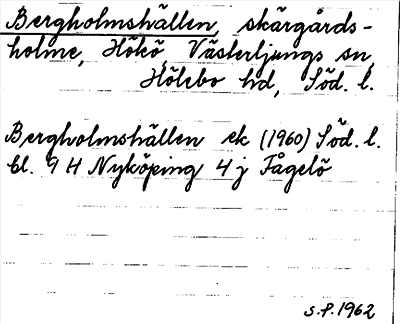 Bergholmshällen, skärgårds-
holme, Hökö, Västerljungs sn,
Hölebo hd, Söd. l.
Bergholmshällen ek (1960) Söd. l.
bl. 9 H Nyköping 4 j Fågelö
S.P. 1962